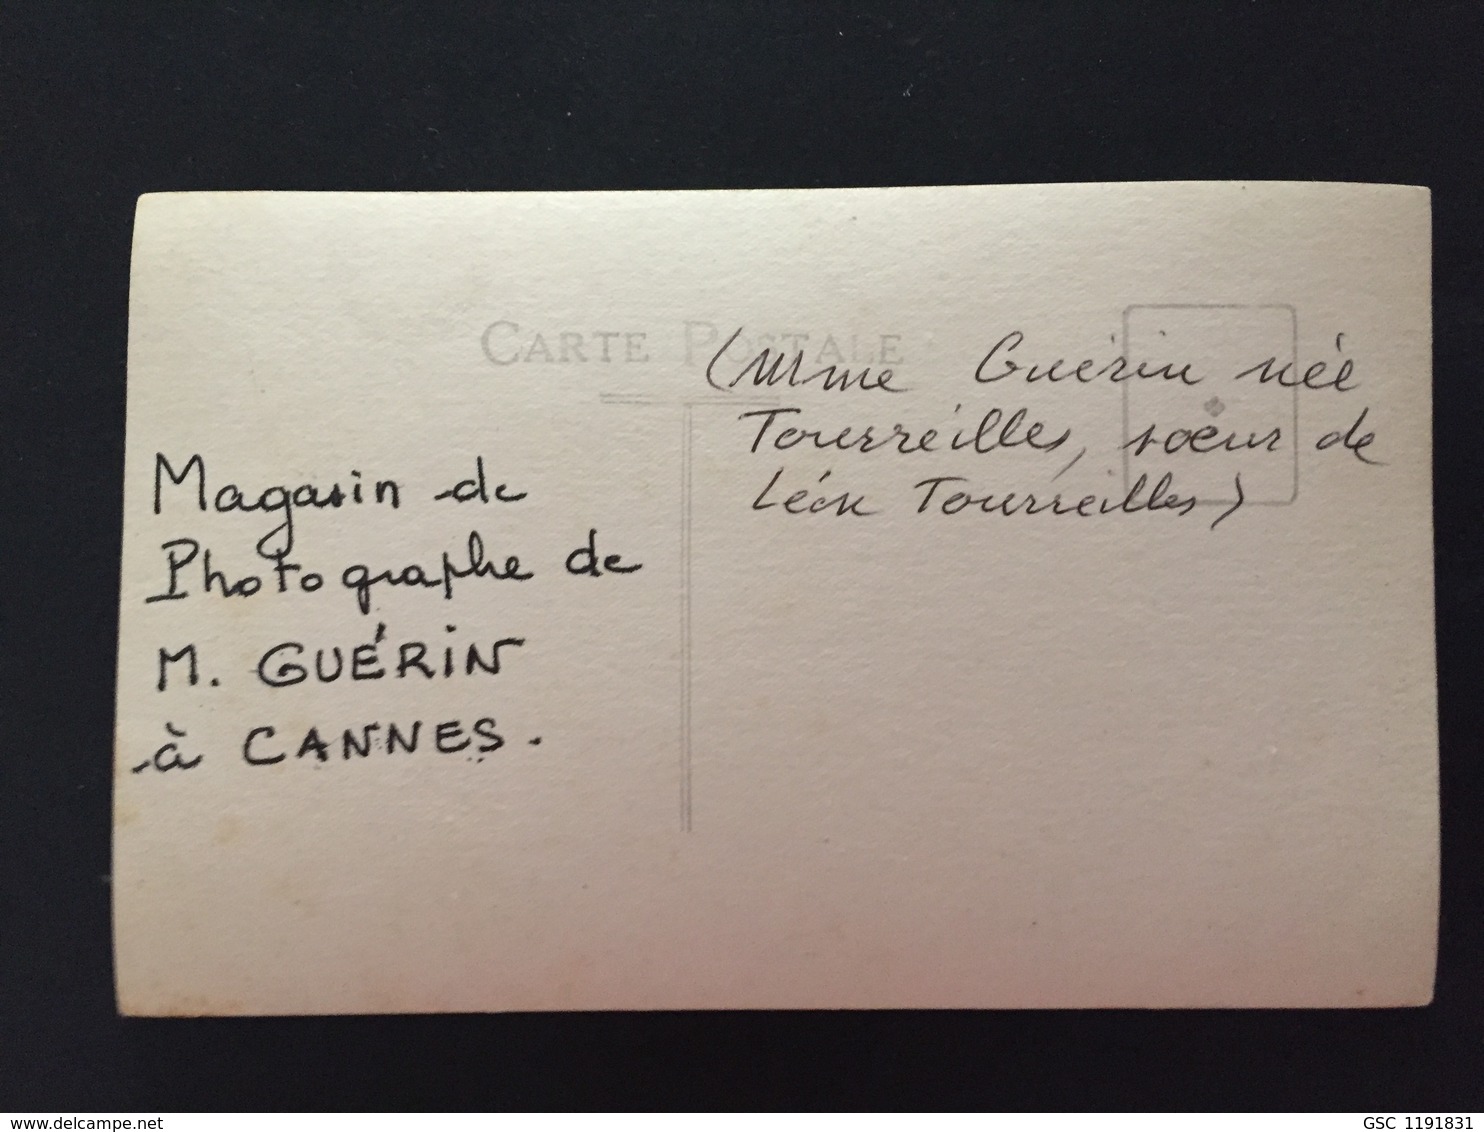 CARTE POSTALE
Magasin de
Photographe de
M. GUÉRIN
à CANNES.
(Mme Guérin née
Tourreilles, soeur de
Léon Tourreilles)
www.delcampe.net
GSC 1191831